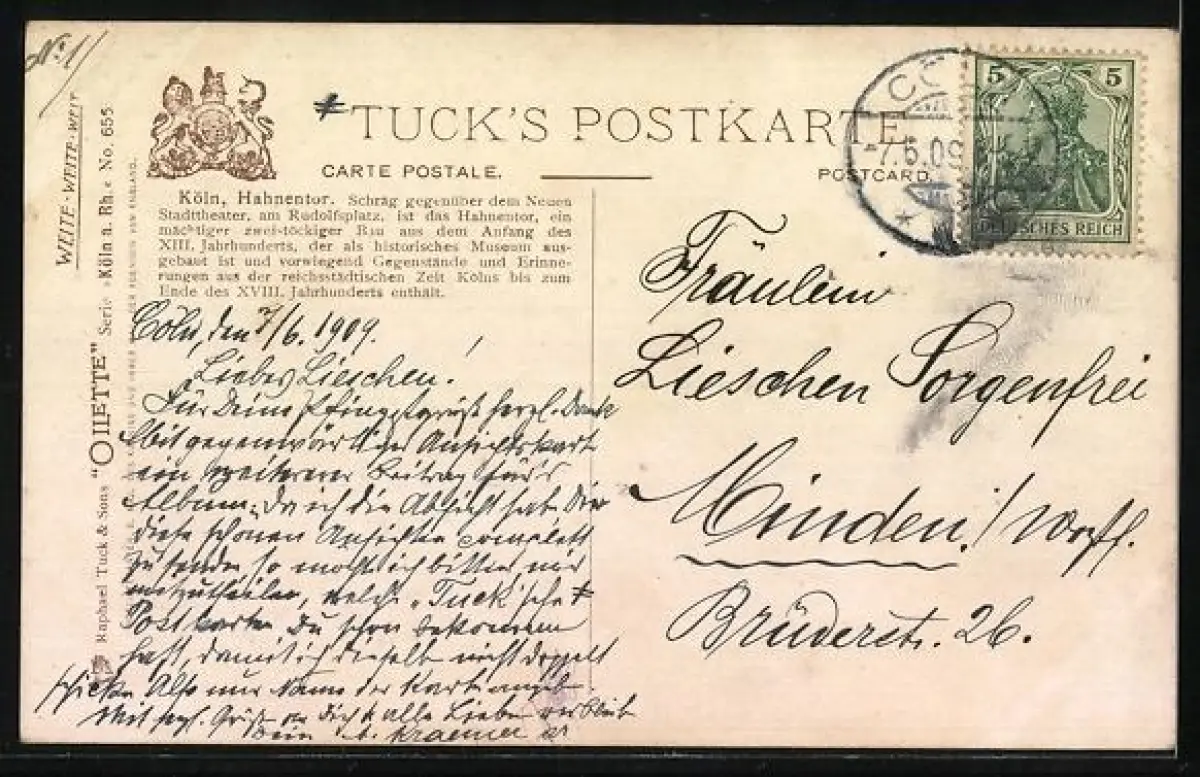 No. 1)
WEITE·WEITE·WEIT
Raphael Tuck & Sons "OILETTE" Serie »Köln a. Rh.« No. 655
* TUCK'S POSTKARTE
CARTE POSTALE.
POSTCARD.
Köln, Hahnentor. Schräg gegenüber dem Neuen
Stadttheater, am Rudolfsplatz, ist das Hahnentor, ein
mächtiger zwei-töckiger Bau aus dem Anfang des
XIII. Jahrhunderts, der als historisches Museum aus-
gebaut ist und vorwiegend Gegenstände und Erinne-
rungen aus der reichsstädtischen Zeit Kölns bis zum
Ende des XVIII. Jahrhunderts enthält.
Cöln, den 7/6. 1909.
Liebes Lieschen!
Für Deine Pfingstgrüße herzl. Dank
Mit gegenwärtiger Ansichtskarte
ein weiterer Beitrag für's
Album. Da ich die Absicht habe Dir
diese schönen Ansichten complett
zu senden so möchte ich bitten mir
mitzutheilen, welche "Tuck'sche *
Postkarten Du schon bekommen
hast, damit ich dieselbe nicht doppelt
schicke. Also nur Name der Karte angeben.
Mit hzl. Gruß an Dich & alle Lieben verbleib
Dein Kraemer
CÖ
7.6.09
5 5
DEUTSCHES REICH
Fräulein
Lieschen Sorgenfrei
Minden i/Westf.
Brüderstr. 26.